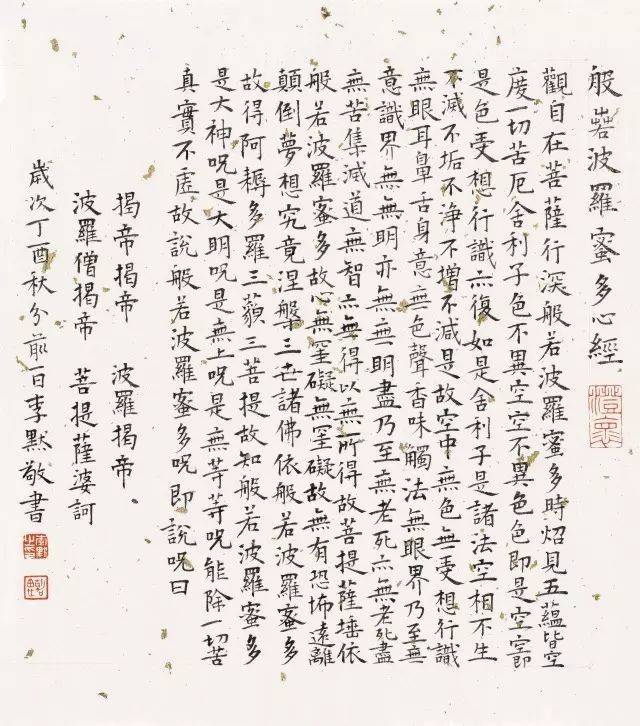 般若波羅蜜多心經
觀自在菩薩行深般若波羅蜜多時炤見五蘊皆空
度一切苦厄舍利子色不異空空不異色色即是空空即
是色受想行識亦復如是舍利子是諸法空相不生
不滅不垢不淨不增不減是故空中無色無受想行識
無眼耳鼻舌身意無色聲香味觸法無眼界乃至無
意識界無無明亦無無明盡乃至無老死亦無老死盡
無苦集滅道無智亦無得以無所得故菩提薩埵依
般若波羅蜜多故心無罣礙無罣礙故無有恐怖遠離
顛倒夢想究竟涅槃三世諸佛依般若波羅蜜多
故得阿耨多羅三藐三菩提故知般若波羅蜜多
是大神呪是大明呪是無上呪是無等等呪能除一切苦
真實不虛故說般若波羅蜜多呪即說呪曰
揭帝揭帝 波羅揭帝
波羅僧揭帝 菩提薩婆訶
歲次丁酉秋分前一日李默敬書